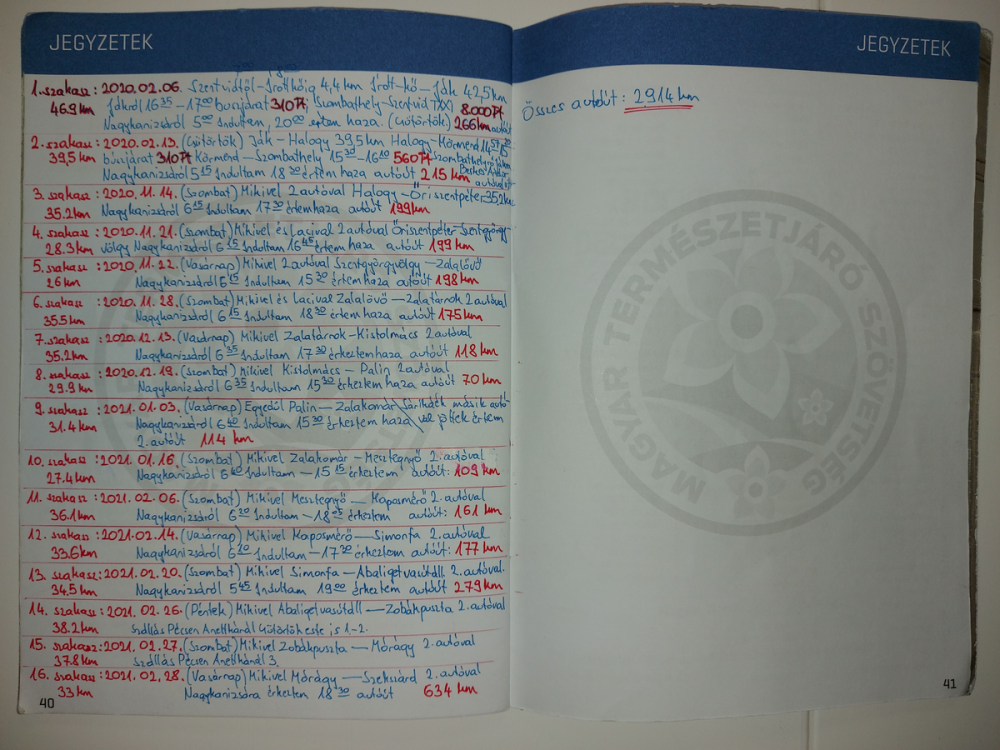 JEGYZETEK
1. szakasz: 2020.02.06. Szentvidtől-Írottkőig 4,4 km Írott-kő—Ják 42,5 km
46.9 km Jákról 16 35 – 17 00 buszjárat 310 Ft, Szombathely-Szentvid TAXI 8.000 Ft
Nagykanizsáról 5 00 Indultam, 20 00 értem haza (Csütörtök) 266 km autóút
2. szakasz: 2020.02.13. (Csütörtök) Ják – Halogy 39,5 km Halogy-Körmend
39,5 km buszjárat 310 Ft Körmend – Szombathely 15 30 – 16 20 560 Ft Szombathelyről Jákra
Nagykanizsáról 5 15 Indultam 18 30 értem haza autóút 215 km
3. szakasz: 2020.11.14. (Szombat) Mikivel 2 autóval Halogy – Őriszentpéter 35.2 km
35.2 km Nagykanizsáról 6 15 Indultam 17 30 értem haza autóút 199 km
4. szakasz: 2020.11.21. (Szombat) Mikivel és Lacival 2 autóval Őriszentpéter-Szentgyörgy-
28.3 km völgy Nagykanizsáról 6 15 Indultam 16 45 értem haza autóút 199 km
5. szakasz: 2020.11.22. (Vasárnap) Mikivel 2 autóval Szentgyörgyvölgy – Zalalövő
26 km Nagykanizsáról 6 15 Indultam 15 30 értem haza autóút 198 km
6. szakasz: 2020.11.28. (Szombat) Mikivel és Lacival Zalalövő — Zalatárnok 2 autóval
35.5 km Nagykanizsáról 6 15 Indultam 18 30 értem haza autóút 175 km
7. szakasz: 2020.12.13. (Vasárnap) Mikivel Zalatárnok-Kistolmács 2 autóval
35.2 km Nagykanizsáról 6 35 Indultam 17 30 érkeztem haza autóút 118 km
8. szakasz: 2020.12.19. (Szombat) Mikivel Kistolmács – Palin 2 autóval
29.9 km Nagykanizsáról 6 35 Indultam 15 30 érkeztem haza autóút 70 km
9. szakasz: 2021.01.03. (Vasárnap) Egyedül Palin — Zalakomár, Sárikáék másik autó-
31.4 km Nagykanizsáról 6 40 Indultam 15 30 érkeztem haza val jöttek értem
2. autóút 114 km
10. szakasz: 2021.01.16. (Szombat) Mikivel Zalakomár – Mesztegnyő 2. autóval
27.4 km Nagykanizsáról 6 40 Indultam – 15 15 érkeztem autóút: 109 km
11. szakasz: 2021.02.06. (Szombat) Mikivel Mesztegnyő — Kaposmérő 2. autóval
36.1 km Nagykanizsáról 6 20 Indultam – 18 05 érkeztem autóút: 161 km
12. szakasz: 2021.02.14. (Vasárnap) Mikivel Kaposmérő — Simonfa 2. autóval
33.6 km Nagykanizsáról 6 20 Indultam – 17 20 érkeztem autóút: 177 km
13. szakasz: 2021.02.20. (Szombat) Mikivel Simonfa – Abaligetvasútáll. 2. autóval
34.5 km Nagykanizsáról 5 45 Indultam 19 00 érkeztem autóút 279 km
14. szakasz: 2021.02.26. (Péntek) Mikivel Abaligetvasútáll — Zobákpuszta 2. autóval
38.2 km Szállás Pécsen Anettkánál Csütörtök este is 1-2.
15. szakasz: 2021.02.27. (Szombat) Mikivel Zobákpuszta — Mórágy 2. autóval
37.8 km szállás Pécsen Anettkánál 3.
16. szakasz: 2021.02.28. (Vasárnap) Mikivel Mórágy — Szekszárd 2. autóval
33 km Nagykanizsára érkeztem 18 30 autóút 634 km
40
JEGYZETEK
Összes autóút: 2914 km
MAGYAR TERMÉSZETJÁRÓ SZÖVETSÉG
41